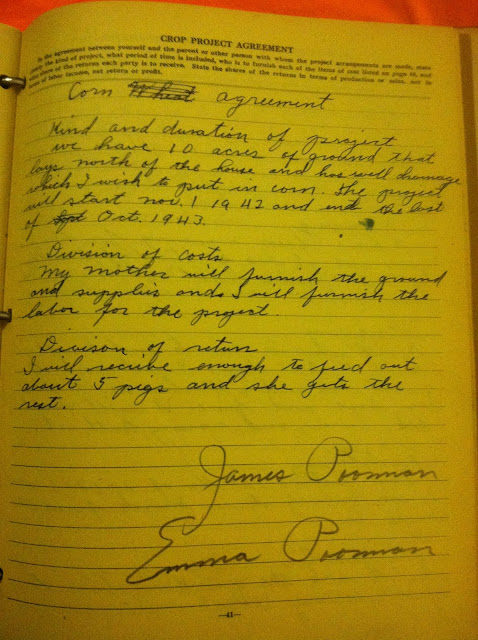 CROP PROJECT AGREEMENT
In the agreement between yourself and the parent or other person with whom the project arrangements are made, state
the kind of project, what period of time is included, who is to furnish each of the items of cost listed on page 40, and
the share of the returns each party is to receive. State the shares of the returns in terms of production or sales, not in
terms of labor income, net return or profit.
Corn Wheat agreement
Kind and duration of project
We have 10 acres of ground that
lays north of the house and has well drainage
which I wish to put in corn. The project
will start nov. 1 1942 and end the last
of Sept Oct. 1943.
Division of costs
My mother will furnish the ground
and supplies and I will furnish the
labor for the project
Divison of return
I will recieve enough to feed out
about 5 pigs and she gets the
rest.
James Poorman
Emma Poorman
—41—